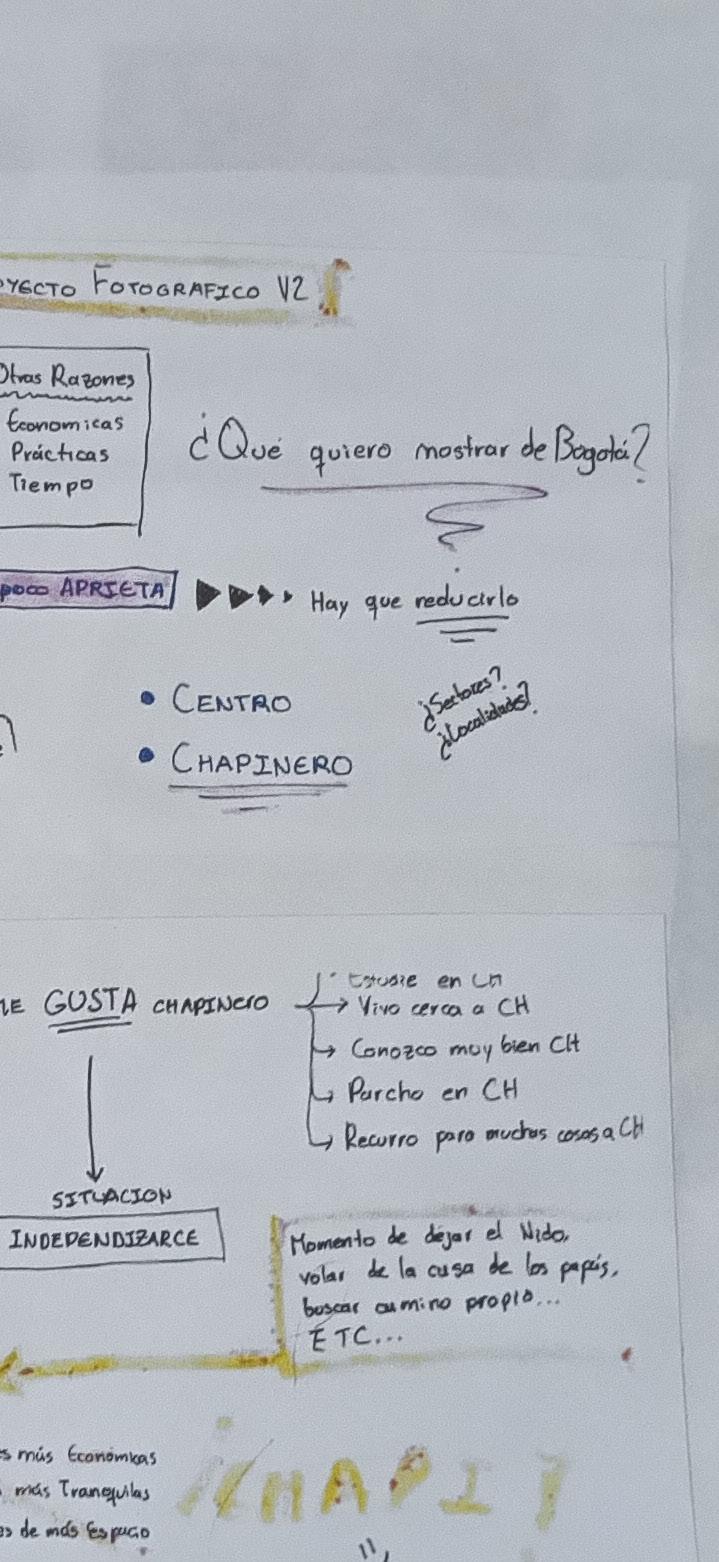 OYECTO FOTOGRAFICO V2
Otras Razones
Economicas
Prácticas
Tiempo
¿Qué quiero mostrar de Bogotá?
poco APRIETA
Hay que reducirlo
• CENTRO
• CHAPINERO
¿Sectores?
¿Localidades?
ME GUSTA CHAPINERO
Estudie en CH
Vivo cerca a CH
Conozco muy bien CH
Parcho en CH
Recurro para muchas cosas a CH
SITUACION
INDEPENDIZARCE
Momento de dejar el Nido,
volar de la casa de los papás,
buscar camino propio...
ETC...
s más Económicas
más Tranquilas
es de más Espacio
CHAPI